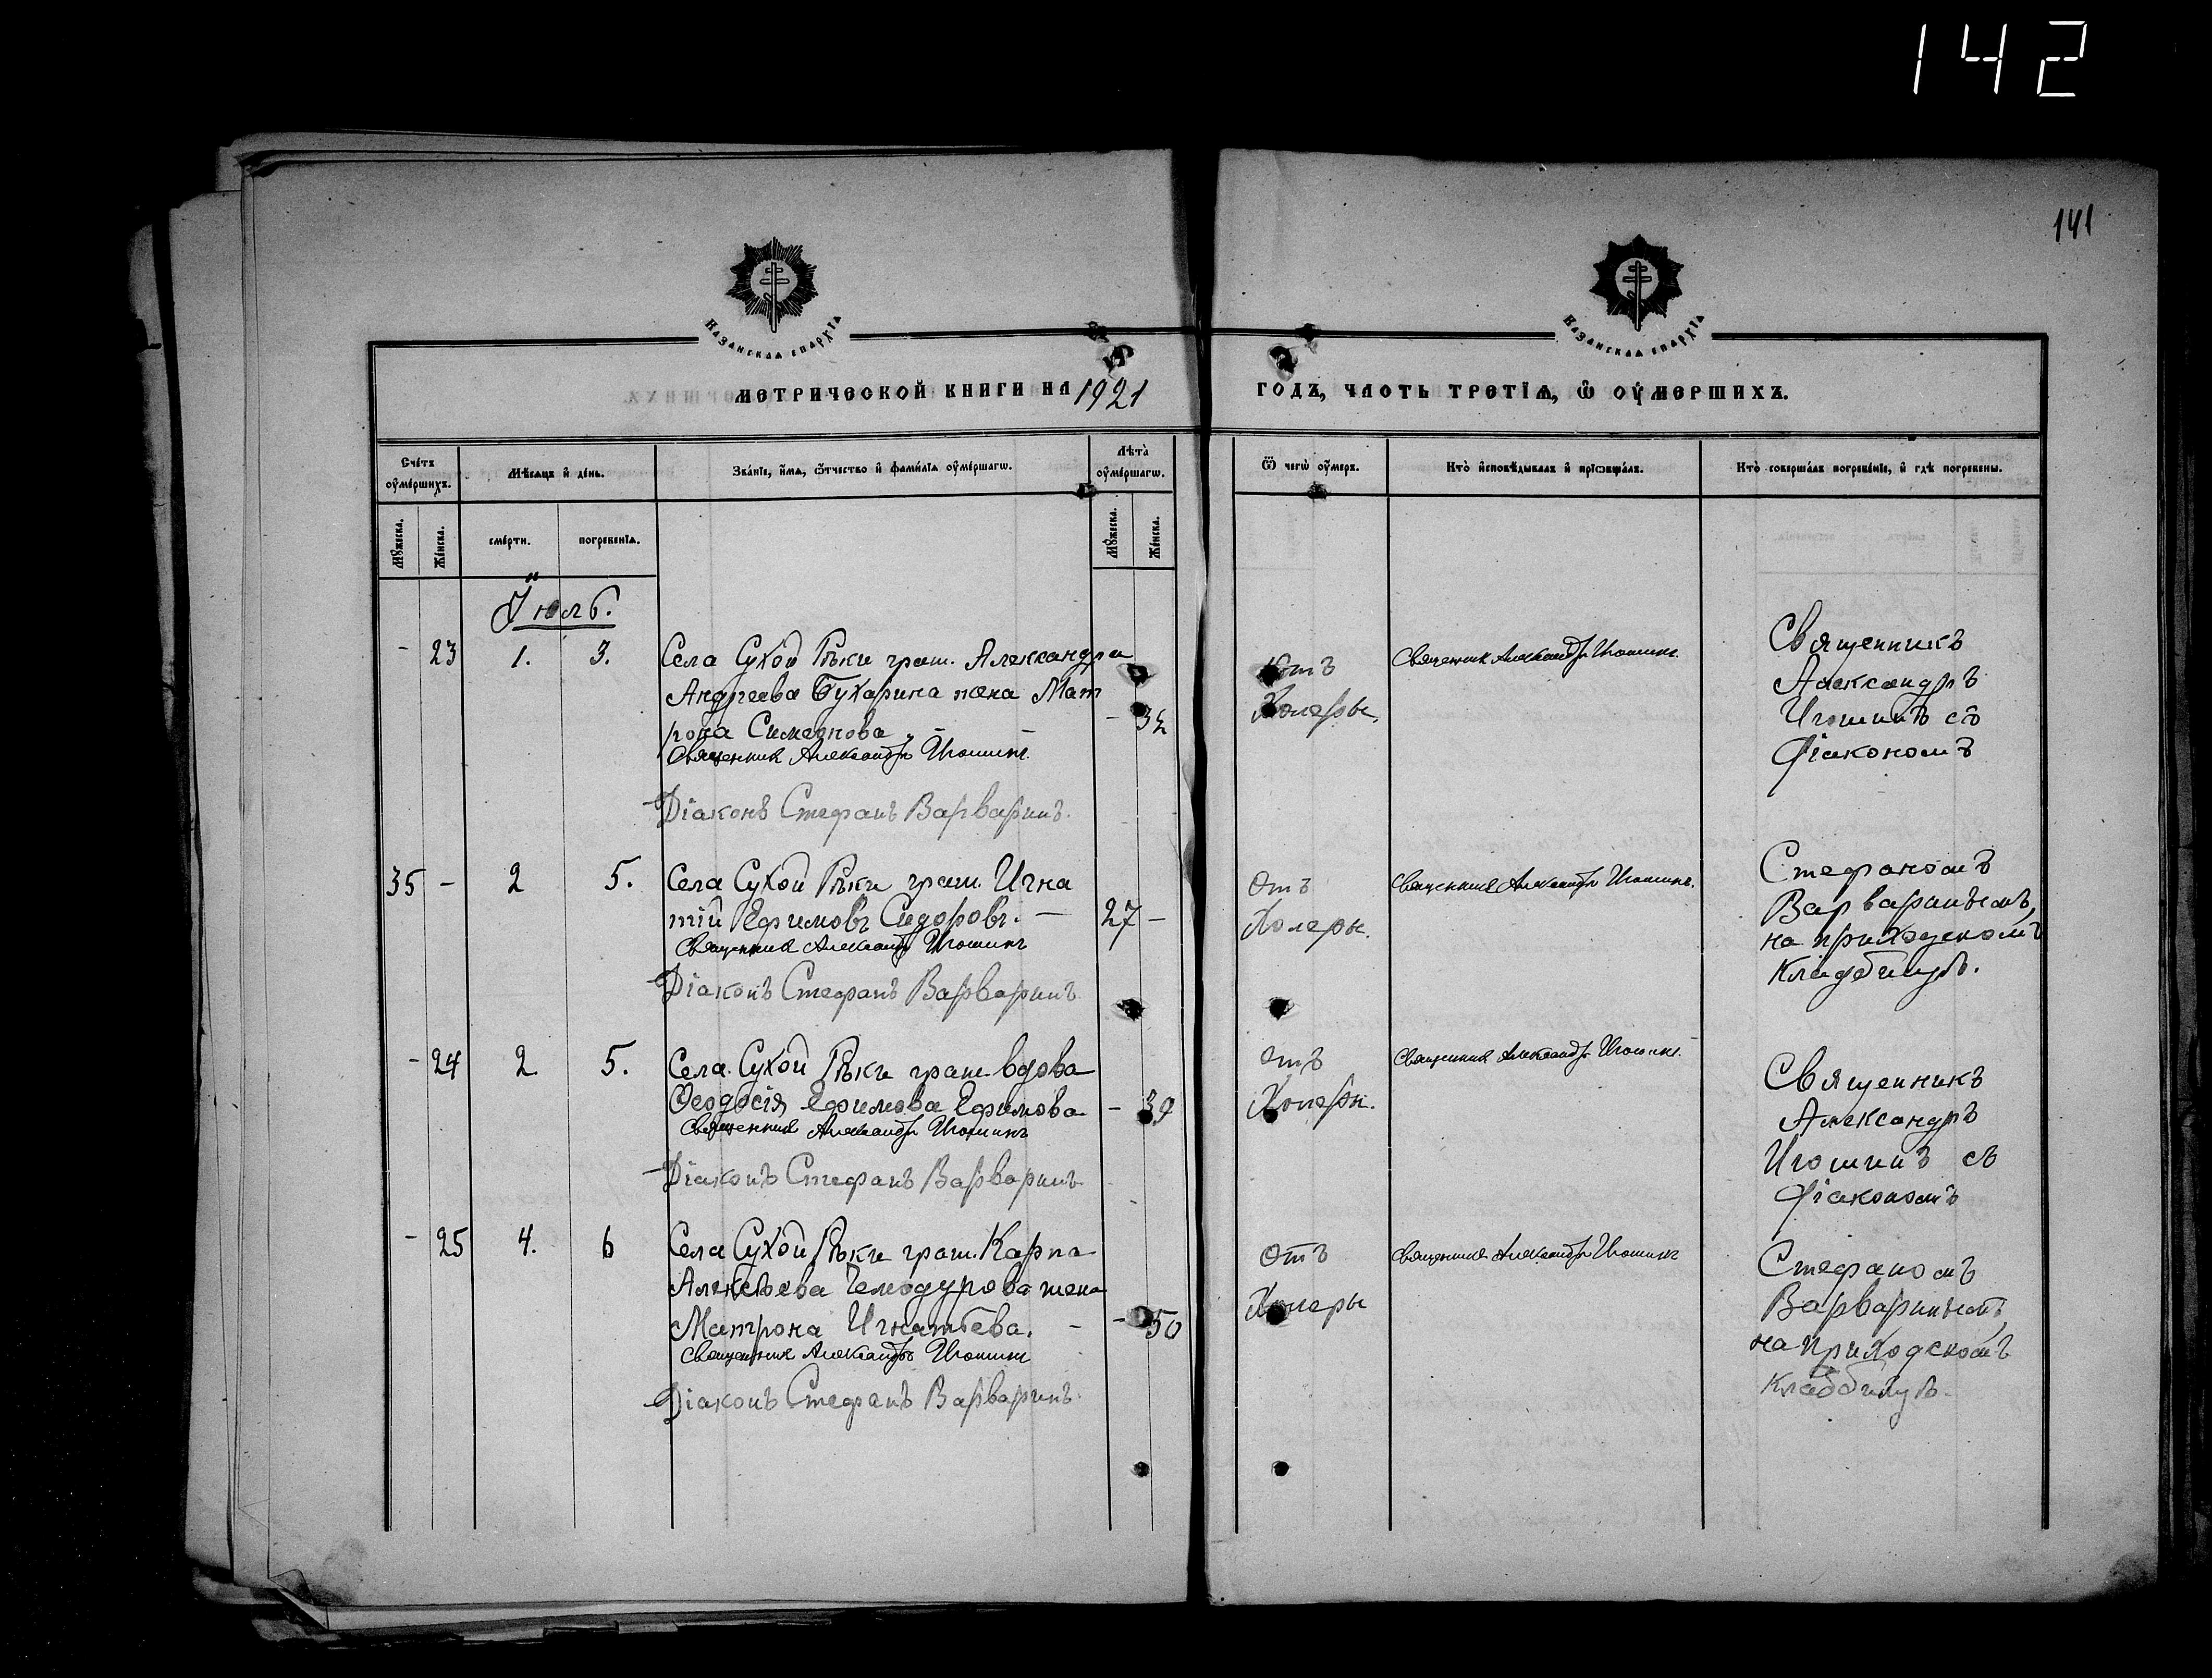 142
141
КАЗАНСКАѦ ЕПАРХІѦ
КАЗАНСКАѦ ЕПАРХІѦ
МЕТРИЧЕСКОЙ КНИГИ НА 1921
ГОДЪ, ЧАСТЬ ТРЕТІѦ, Ѽ ОУМЕРШИХЪ.
Счетъ оумершихъ.
Мѣсѧцъ и день.
Званїе, имѧ, ѿчество и фамилїѧ оумершагѡ.
Лѣта оумершагѡ.
Ѿ чегѡ оумеръ.
Кто исповѣдывалъ и прїѡбщалъ.
Кто совершалъ погребенїе, и гдѣ погребены.
Мꙋжеска.
Женска.
смерти.
погребенїѧ.
Мꙋжеска.
Женска.
Іюль.
- 23 1. 3. Села Сухой Рѣки граж. Александра
Андреева Бухарина жена Мат
рона Симеонова. -
Священникъ Александръ Игошинъ.
Діаконъ Стефанъ Варваринъ.
Отъ
Холеры.
Священникъ Александръ Игошинъ.
Священникъ
Александръ
Игошинъ съ
Діакономъ
35 - 2 5. Села Сухой Рѣки граж. Игна
тій Ефимовъ Сидоровъ. - 27 -
Священникъ Александръ Игошинъ
Діаконъ Стефанъ Варваринъ
Отъ
Холеры.
Священникъ Александръ Игошинъ.
Стефаномъ
Варваринымъ,
на приходскомъ
кладбищѣ.
- 24 2 5. Села Сухой Рѣки граж. вдова
Ѳеодосія Ефимова Ефимова -
Священникъ Александръ Игошинъ
Діаконъ Стефанъ Варваринъ
Отъ
Холеры.
Священникъ Александръ Игошинъ.
Священникъ
Александръ
Игошинъ съ
Діакономъ
- 25 4. 6 Села Сухой Рѣки граж. Карпа
Алексѣева Чемодурова жена
Матрона Игнатьева. - - 50
Священникъ Александръ Игошинъ
Діаконъ Стефанъ Варваринъ
Отъ
Холеры
Священникъ Александръ Игошинъ
Стефаномъ
Варваринымъ,
на приходскомъ
кладбищѣ.